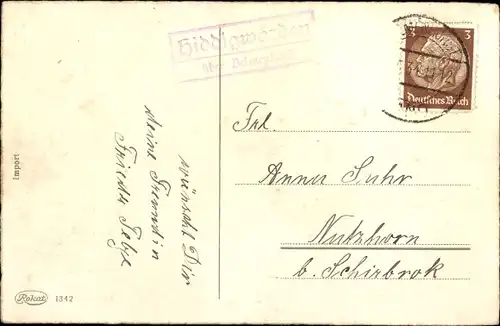 Hiddigwarden
über
3 3
Deutsches Reich
Frl.
Anna Suhr
Nutzhorn
b. Schierbrok
wünscht Dir
deine Freundin
Frieda
Import
Rokat 1342